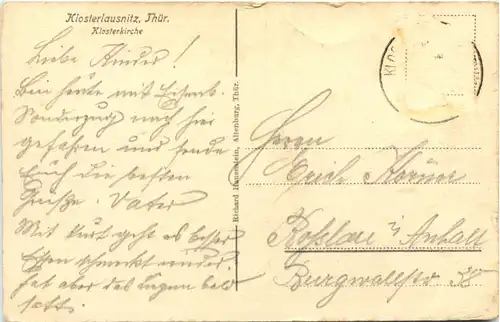 Klosterlausnitz, Thür.
Klosterkirche
Liebe Kinder!
Bin heute mit Eisenb.
Sonderzug nach hier
gefahren und sende
Euch die besten
Grüße. Vater
Mit Kurt geht es besser
Essen schmeckt wieder
hat aber das Liegen bald
satt.
Richard Hauenstein, Altenburg, Thür.
KLOS
Herrn
Erich Körner
Roßlau i/ Anhalt
Burgwallstr 38